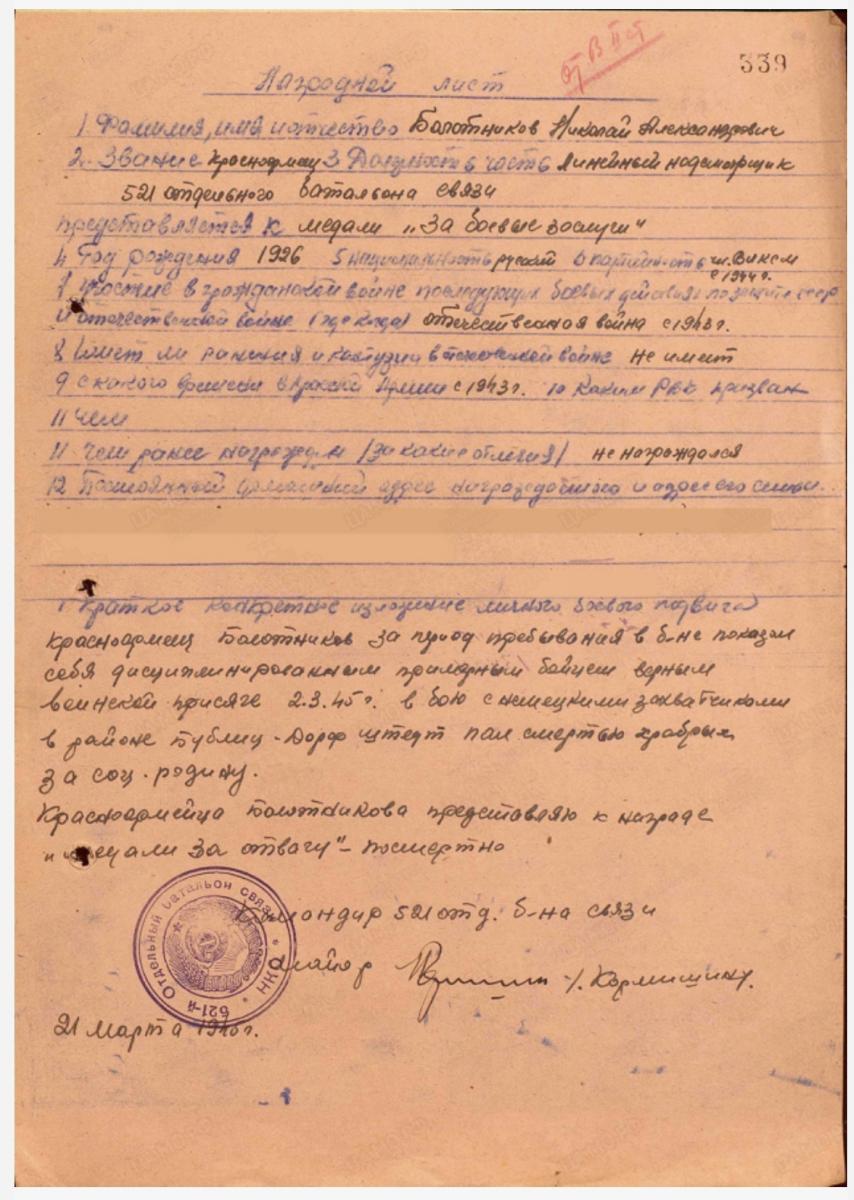 339
Наградной лист
1 Фамилия, имя и отчество Болотников Николай Александрович
2. Звание Красноармеец 3 Должность часть Линейный надсморщик
521 отдельного батальона связи
представляется к медали "За боевые заслуги"
4 Год рождения 1926 5 национальность русский 6 партийность чл. ВЛКСМ
с 1944 г.
7 участие в гражданской войне последующих боевых действиях по защите СССР
и отечественной войне (где когда) отечественная война с 1943 г.
8 Имеет ли ранения и контузии в отечественной войне не имеет
9 с какого времени в Красной Армии с 1943 г. 10 Каким РВК призван
11 Чем
11 Чем ранее награжден (за какие отличия) не награждался
12 Постоянный домашний адрес награжденного и адрес его семьи
1 Краткое конкретное изложение личного боевого подвига
Красноармеец Болотников за период пребывания в б-не показал
себя дисциплинированным примерным бойцом верным
воинской присяге 2.3.45 г. в бою с немецкими захватчиками
в районе Бублиц-Дорф штедт пал смертью храбрых
за соц. родину.
Красноармейца Болотникова представляю к награде
медали За отвагу" - посмертно
Командир 521 отд. б-на связи
Майор /. Кормишин/.
521-й Отдельный батальон связи * НКО *
21 марта 1945 г.